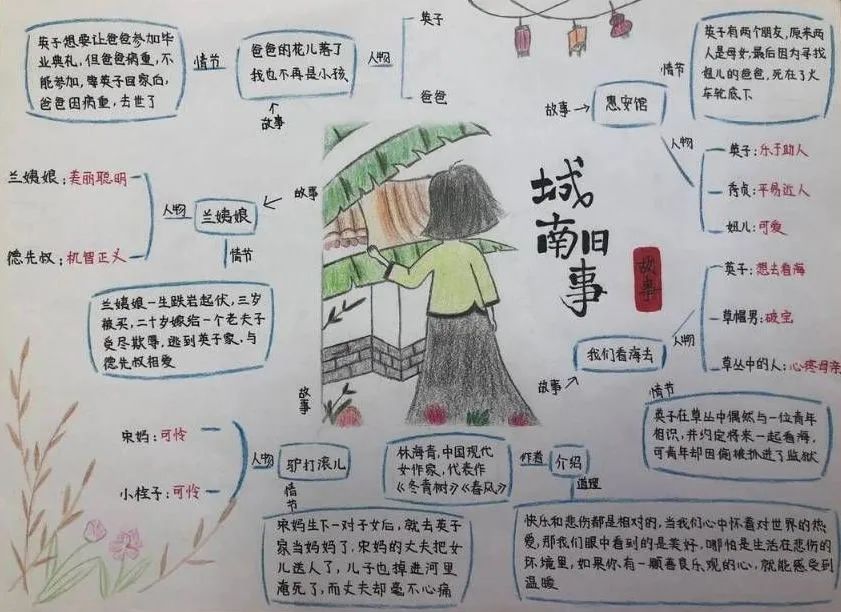 城南旧事
故事
英子想要让爸爸参加毕
业典礼，但爸爸病重，不
能参加，等英子回家后，
爸爸因病重，去世了
情节
爸爸的花儿落了
我也不再是小孩
人物
英子
爸爸
故事
兰姨娘：美丽聪明
德先叔：机智正义
人物
兰姨娘
故事
情节
兰姨娘一生跌宕起伏，三岁
被买，二十岁嫁给一个老夫子
受尽欺辱，逃到英子家，与
德先叔相爱
宋妈：可怜
小栓子：可怜
人物
驴打滚儿
故事
情节
宋妈生下一对子女后，就去英子
家当妈妈了，宋妈的丈夫把女
儿送人了，儿子也掉进河里
淹死了，而丈夫却毫不心痛
林海音，中国现代
女作家，代表作
《冬青树》《春风》
作者
介绍
道理
快乐和悲伤都是相对的，当我们心中怀着对世界的热
爱，那我们眼中看到的是美好，哪怕是生活在悲伤的
环境里，如果你有一颗善良乐观的心，就能感受到
温暖
故事
惠安馆
情节
英子有两个朋友，原来两
人是母女，最后因为寻找
妞儿的爸爸，死在了火
车轮底下
人物
英子：乐于助人
秀贞：平易近人
妞儿：可爱
故事
我们看海去
人物
英子：想去看海
草帽男：破宝
草丛中的人：心疼母亲
情节
英子在草丛中偶然与一位青年
相识，并约定将来一起看海，
可青年却因偷被抓进了监狱